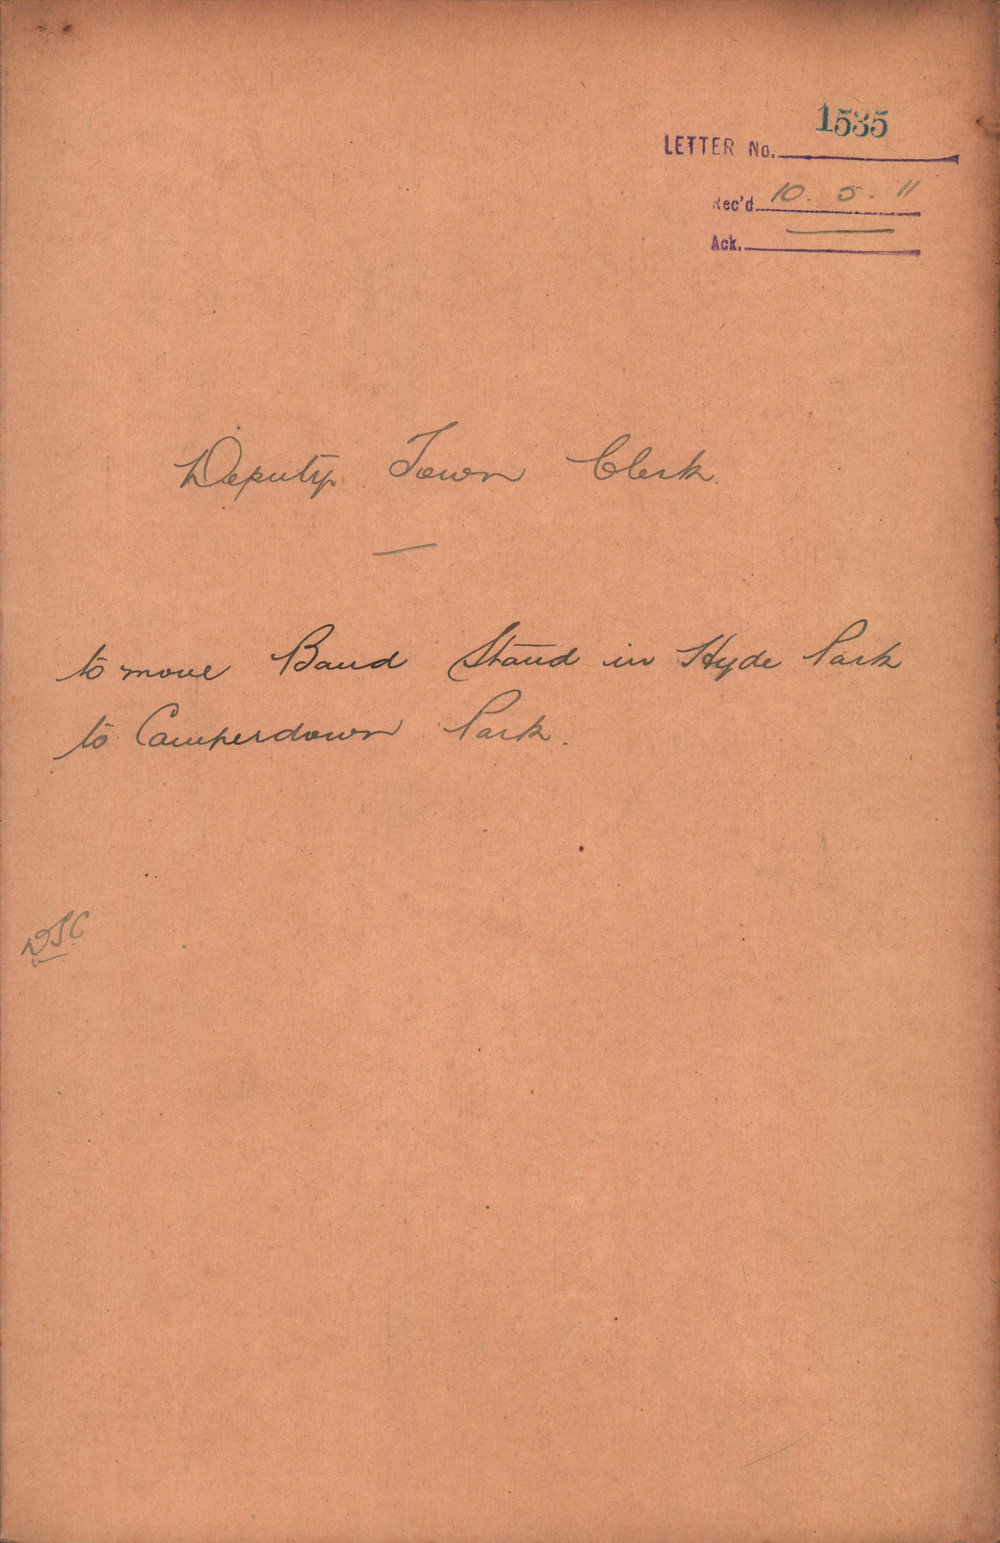 LETTER No. 1535
Rec'd 10. 5. 11
Ack.
Deputy Town Clerk.
to move Band Stand in Hyde Park
to Camperdown Park.